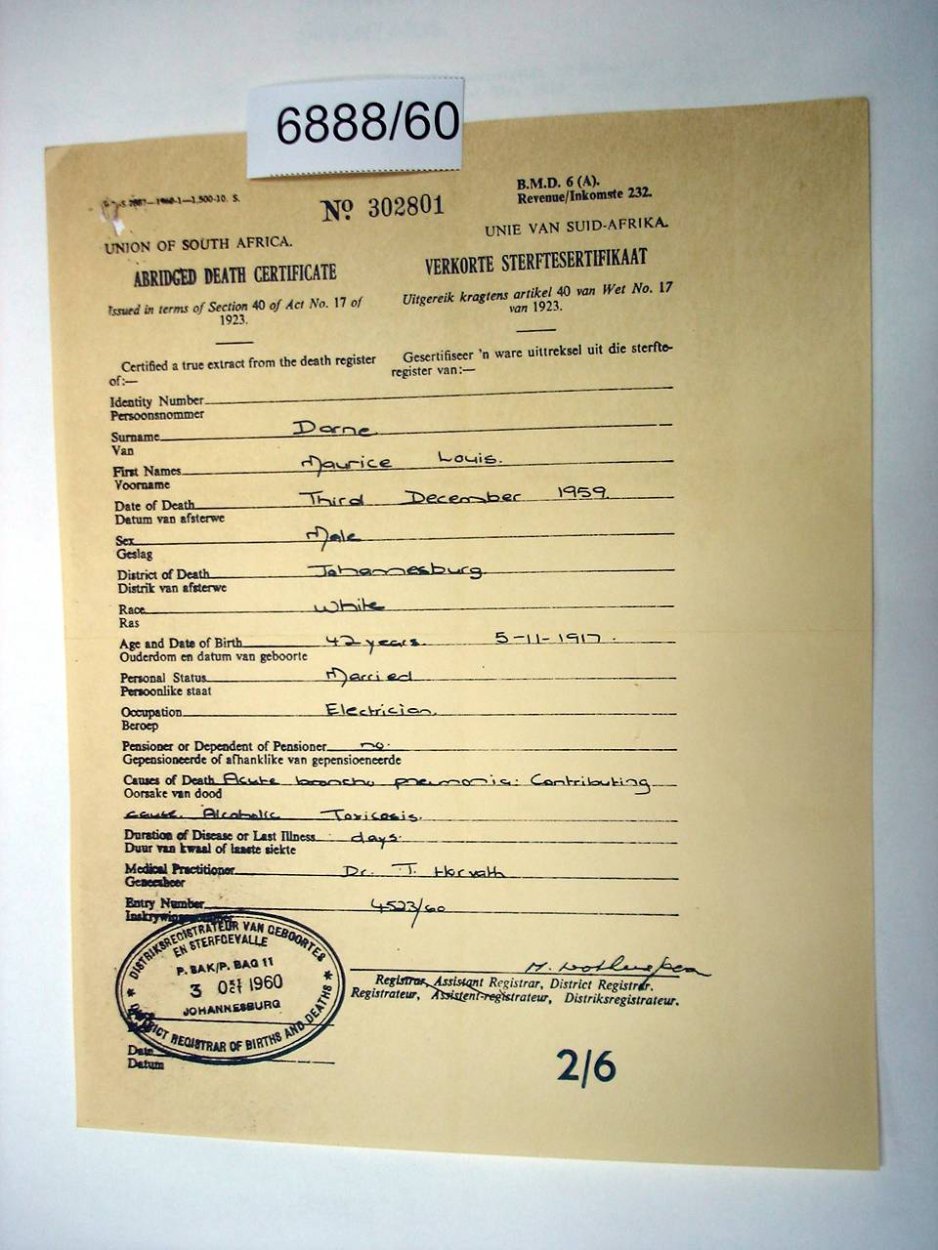 6888/60
B.M.D. 6 (A).
Revenue/Inkomste 232.
Nº 302801
UNION OF SOUTH AFRICA.
UNIE VAN SUID-AFRIKA.
ABRIDGED DEATH CERTIFICATE
VERKORTE STERFTESERTIFIKAAT
Issued in terms of Section 40 of Act No. 17 of
1923.
Uitgereik kragtens artikel 40 van Wet No. 17
van 1923.
Certified a true extract from the death register
of:—
Gesertifiseer 'n ware uittreksel uit die sterfte-
register van:—
Identity Number
Persoonsnommer
Surname Dorne
Van
First Names Maurice Louis.
Voorname
Date of Death Third December 1959
Datum van afsterwe
Sex Male
Geslag
District of Death Johannesburg
Distrik van afsterwe
Race White
Ras
Age and Date of Birth 42 years. 5-11-1917.
Ouderdom en datum van geboorte
Personal Status Married
Persoonlike staat
Occupation Electrician.
Beroep
Pensioner or Dependent of Pensioner no.
Gepensioneerde of afhanklike van gepensioeneerde
Causes of Death Acute broncho pneumonia: Contributing
Oorsake van dood
cause. Alcoholic Toxicosis.
Duration of Disease or Last Illness days.
Duur van kwaal of laaste siekte
Medical Practitioner Dr. T. Horvath
Geneesheer
Entry Number 4523/60
Registrar, Assistant Registrar, District Registrar.
Registrateur, Assistent-registrateur, Distriksregistrateur.
DISTRIKSREGISTRATEUR VAN GEBOORTES
EN STERFGEVALLE
P. SAK/P. BAG 11
3 OCT 1960
JOHANNESBURG
DISTRICT REGISTRAR OF BIRTHS AND DEATHS
Date
Datum
2/6